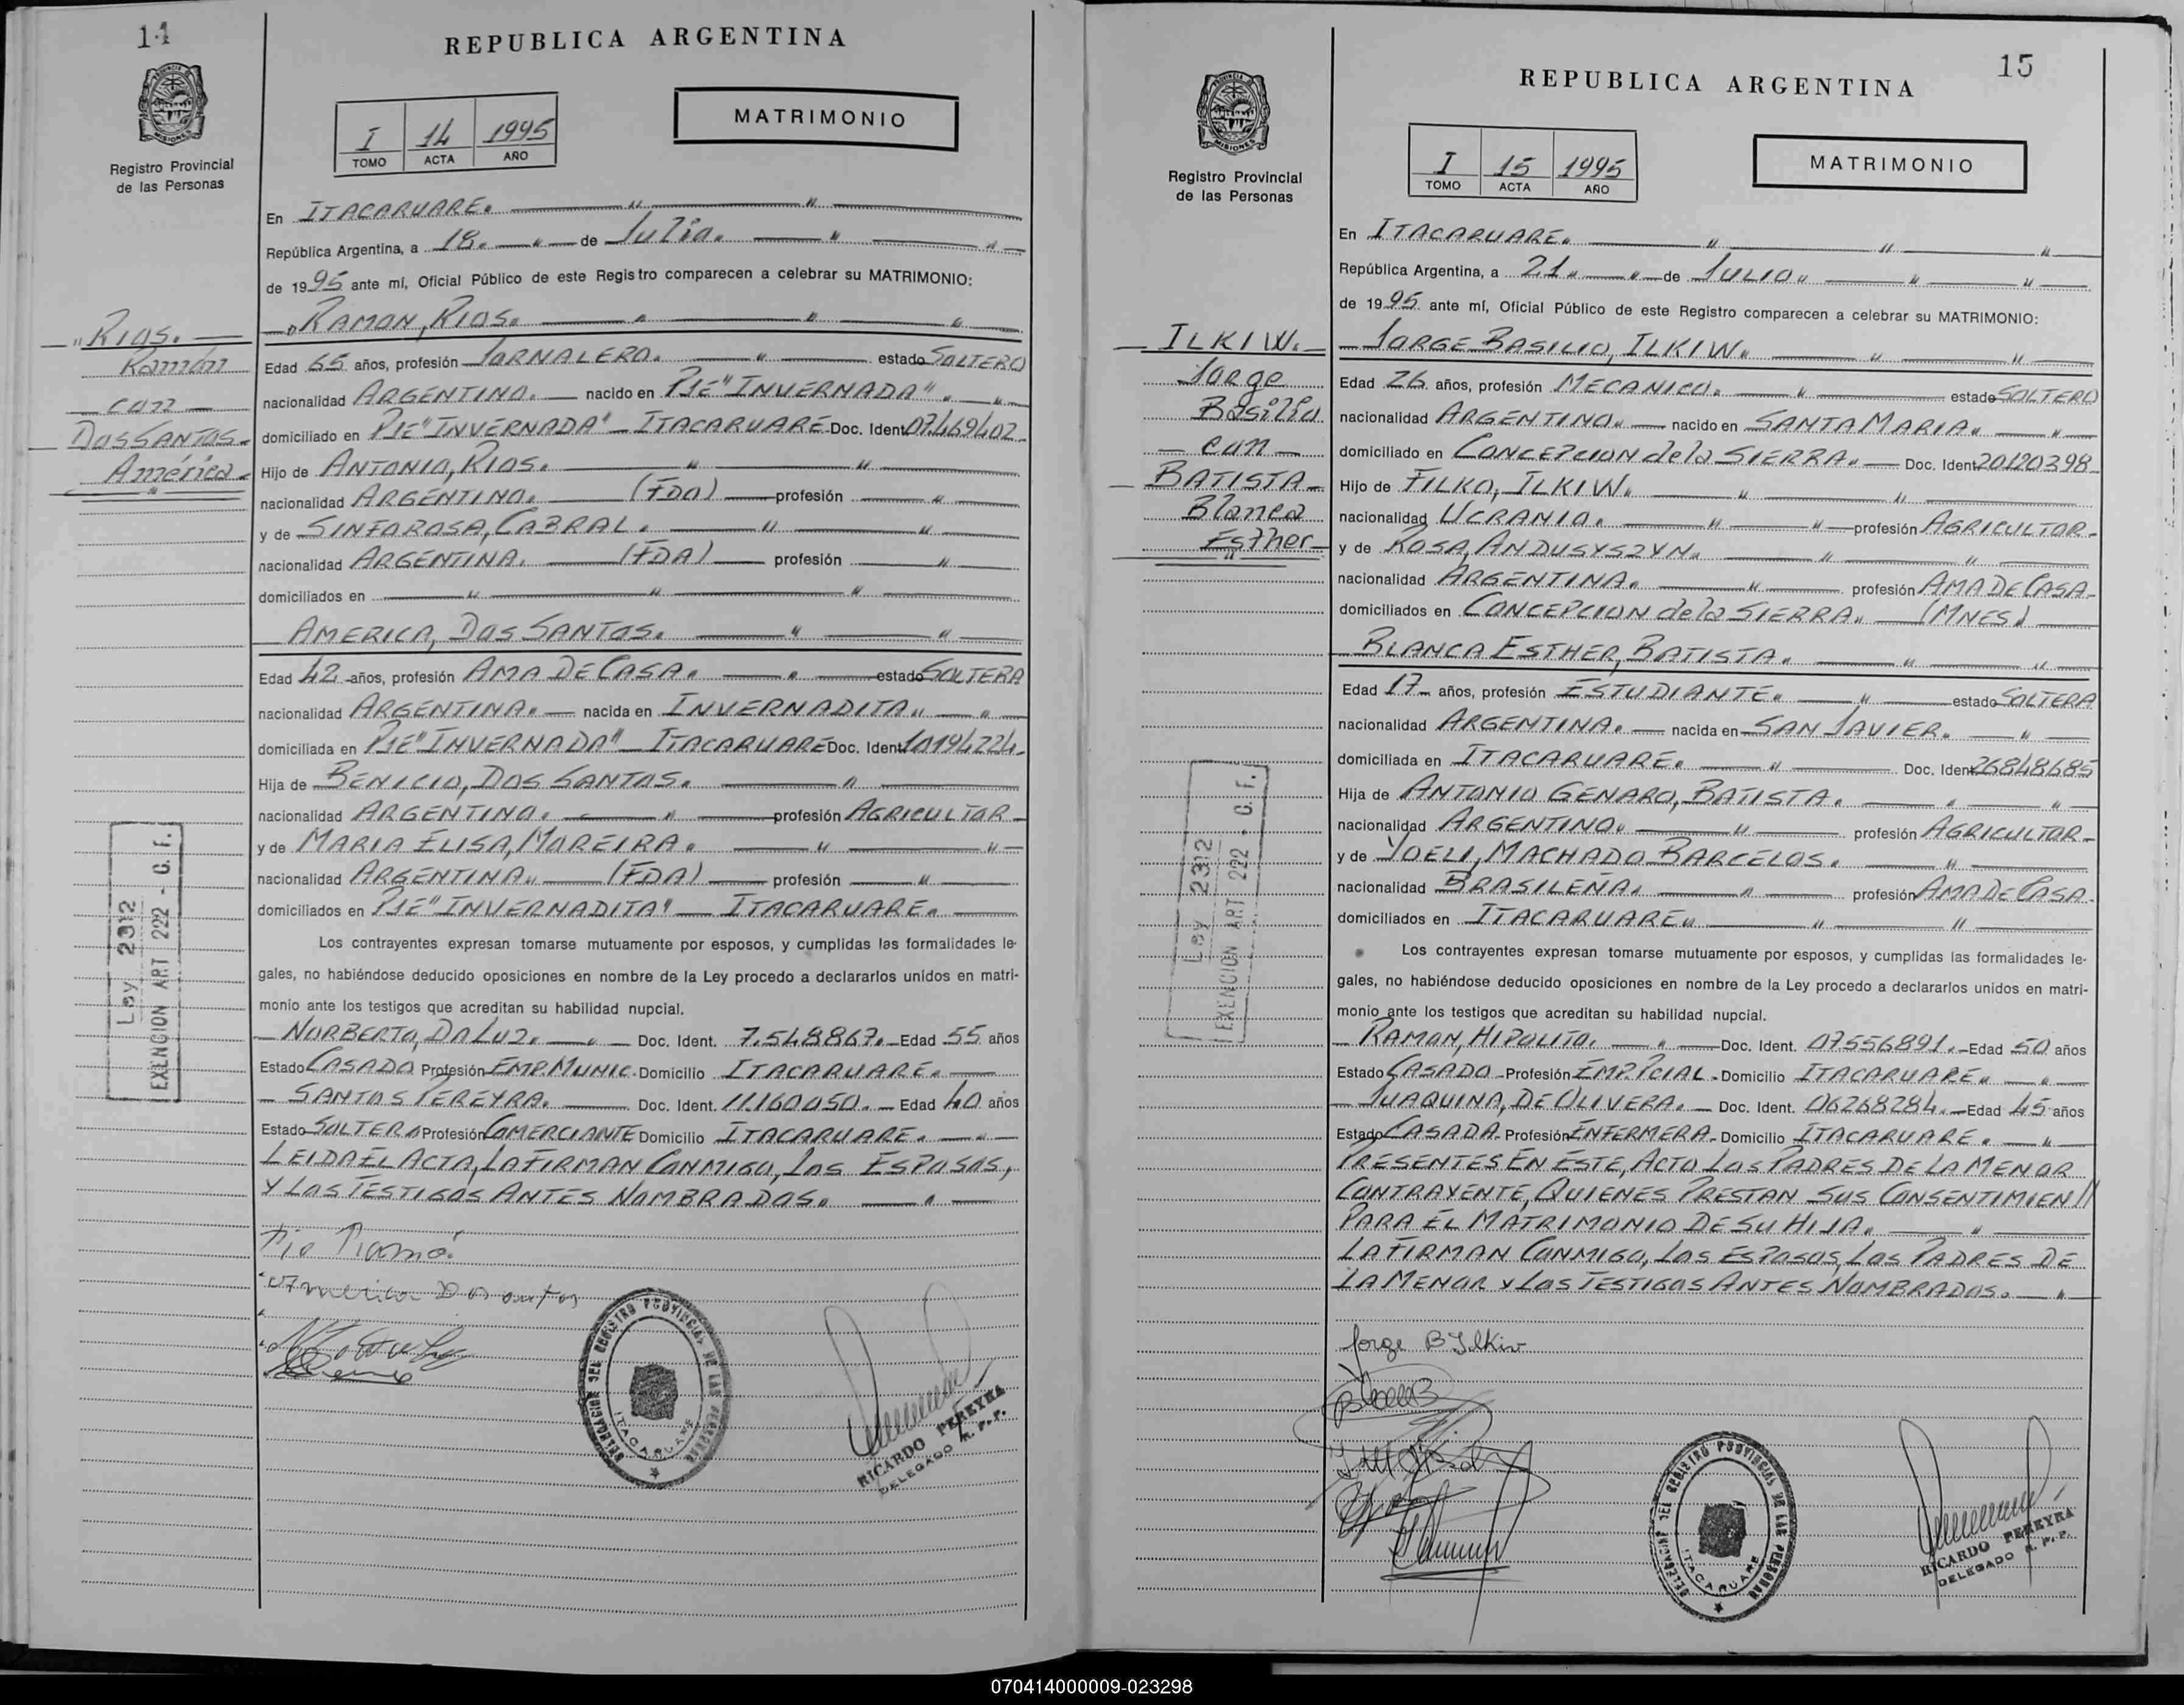 14
REPUBLICA ARGENTINA
MISIONES
Registro Provincial
de las Personas
I 14 1995
TOMO ACTA AÑO
MATRIMONIO
En ITACARUARE.
República Argentina, a 18. de Julio.
de 1995 ante mí, Oficial Público de este Registro comparecen a celebrar su MATRIMONIO:
RIOS.
Ramón
con
DOS SANTOS.
América
RAMON, RIOS.
Edad 65 años, profesión JORNALERO. estado SOLTERO
nacionalidad ARGENTINO. nacido en PJE "INVERNADA".
domiciliado en PJE "INVERNADA" - ITACARUARE- Doc. Ident. 07.469.402
Hijo de ANTONIO, RIOS.
nacionalidad ARGENTINO. (FDO) profesión
y de SINFOROSA, CABRAL.
nacionalidad ARGENTINA. (FDA) profesión
domiciliados en
AMERICA, DOS SANTOS.
Edad 42 años, profesión AMA DE CASA. estado SOLTERA
nacionalidad ARGENTINA. nacida en INVERNADITA.
domiciliada en PJE "INVERNADA" - ITACARUARE Doc. Ident. 10194224
Hija de BENICIO, DOS SANTOS.
nacionalidad ARGENTINO. profesión AGRICULTOR
y de MARIA ELISA, MOREIRA.
nacionalidad ARGENTINA. (FDA) profesión
domiciliados en PJE "INVERNADITA" - ITACARUARE.
Los contrayentes expresan tomarse mutuamente por esposos, y cumplidas las formalidades le-
gales, no habiéndose deducido oposiciones en nombre de la Ley procedo a declararlos unidos en matri-
monio ante los testigos que acreditan su habilidad nupcial.
NORBERTO, DA LUZ. Doc. Ident. 7.548867. Edad 55 años
Estado CASADO Profesión EMP. MUNIC. Domicilio ITACARUARE.
SANTOS PEREYRA. Doc. Ident. 11.160050. Edad 40 años
Estado SOLTERO Profesión COMERCIANTE Domicilio ITACARUARE.
LEIDA EL ACTA, LA FIRMAN CONMIGO, LOS ESPOSOS,
Y LOS TESTIGOS ANTES NOMBRADOS.
Ley 2312
EXENCION ART 222 - G. F.
DELEGACION DEL REGISTRO PROVINCIAL DE LAS PERSONAS
ITACARUARE
RICARDO PEREYRA
DELEGADO R. P. P.
15
REPUBLICA ARGENTINA
MISIONES
Registro Provincial
de las Personas
I 15 1995
TOMO ACTA AÑO
MATRIMONIO
En ITACARUARE.
República Argentina, a 21. de JULIO.
de 1995 ante mí, Oficial Público de este Registro comparecen a celebrar su MATRIMONIO:
ILKIW.
Jorge
Basilio
con
BATISTA
Blanca
Esther
JORGE BASILIO, ILKIW.
Edad 26 años, profesión MECANICO. estado SOLTERO
nacionalidad ARGENTINO. nacido en SANTA MARIA.
domiciliado en CONCEPCION de la SIERRA. Doc. Ident. 20120398
Hijo de FILKO, ILKIW.
nacionalidad UCRANIO. profesión AGRICULTOR
y de ROSA, ANDUSYSZYN.
nacionalidad ARGENTINA. profesión AMA DE CASA
domiciliados en CONCEPCION de la SIERRA. (MNES)
BLANCA ESTHER, BATISTA.
Edad 17 años, profesión ESTUDIANTE. estado SOLTERA
nacionalidad ARGENTINA. nacida en SAN JAVIER.
domiciliada en ITACARUARE. Doc. Ident. 26848685
Hija de ANTONIO GENARO, BATISTA.
nacionalidad ARGENTINO. profesión AGRICULTOR
y de YOELI, MACHADO BARCELOS.
nacionalidad BRASILEÑA. profesión AMA DE CASA
domiciliados en ITACARUARE.
Los contrayentes expresan tomarse mutuamente por esposos, y cumplidas las formalidades le-
gales, no habiéndose deducido oposiciones en nombre de la Ley procedo a declararlos unidos en matri-
monio ante los testigos que acreditan su habilidad nupcial.
RAMON, HIPOLITO. Doc. Ident. 07556891. Edad 50 años
Estado CASADO Profesión EMP. PCIAL. Domicilio ITACARUARE.
JUAQUINA, DE OLIVERA. Doc. Ident. 06268284. Edad 45 años
Estado CASADA Profesión ENFERMERA. Domicilio ITACARUARE.
PRESENTES EN ESTE, ACTO LOS PADRES DE LA MENOR
CONTRAYENTE, QUIENES PRESTAN SUS CONSENTIMIEN//
PARA EL MATRIMONIO DE SU HIJA.
LA FIRMAN CONMIGO, LOS ESPOSOS, LOS PADRES DE
LA MENOR Y LOS TESTIGOS ANTES NOMBRADOS.
Jorge B Ilkiw
Ley 2312
EXENCION ART 222 - G. F.
DELEGACION DEL REGISTRO PROVINCIAL DE LAS PERSONAS
ITACARUARE
RICARDO PEREYRA
DELEGADO R. P. P.
070414000009-023298